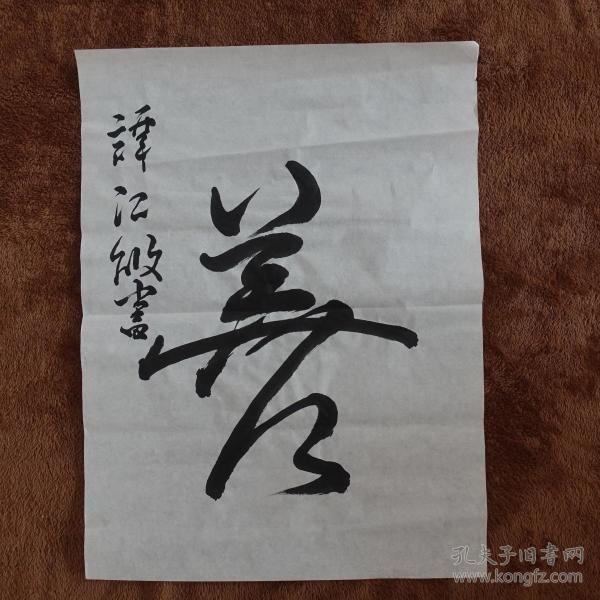 善
譚江書
孔夫子旧书网
www.kongfz.com